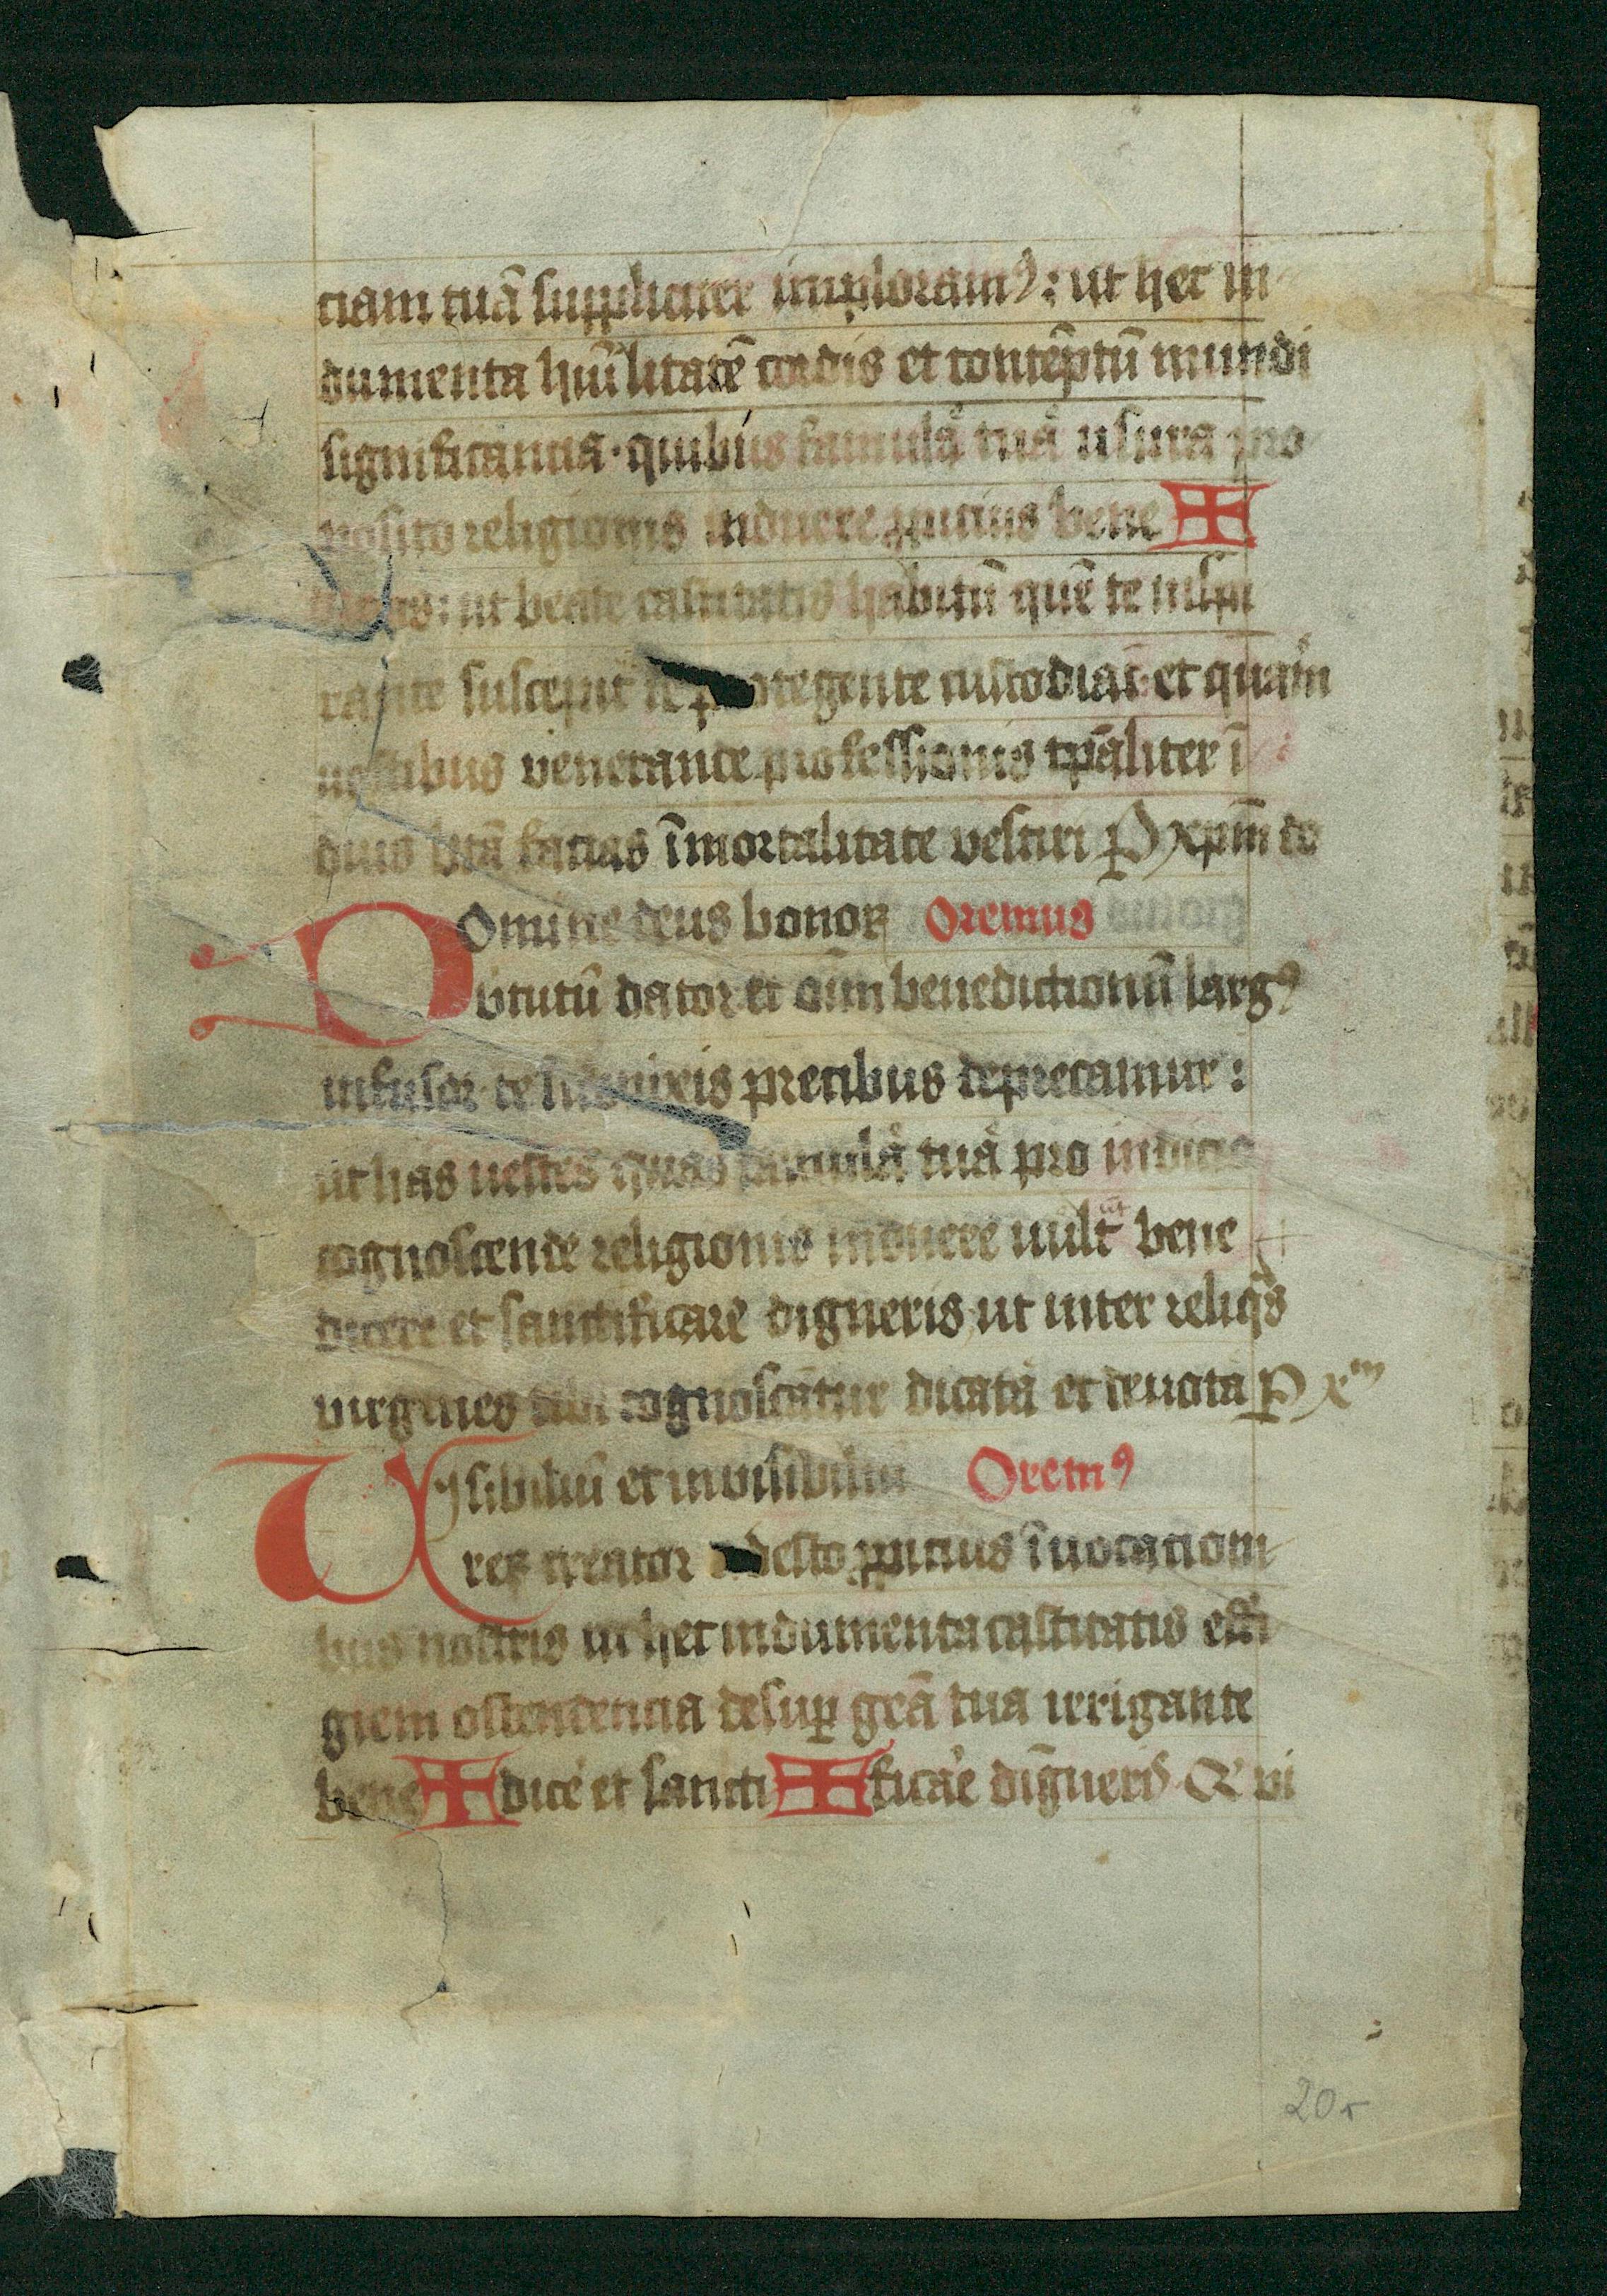 ciam tuā suppliciter imploramꝰ: ut hec in
dumenta hūilitatē cordis et contēptū mundi
significancia. quibus famula tua usura pro
posito religionis induere ꝓpicius bene ✠
dicas: ut beate castitatis habitū quē te inspi
rante suscepit te protegente custodiat et quam
uestibus venerande professionis tp̄aliter ī
duis btā facias īmortalitate vestiri P xpm̄ do
Domine deus bonoꝝ Oremus
v̓tutū dator et oīm benedictionū largꝰ
infusor te subnixis precibus deprecamur:
ut has uestes quas famula tua pro indicio
cognoscende religionis induere uult bene
dicere et sanctificare digneris ut inter reliqͣs
virgines tibi cognoscatur dicata et deuota P xᵐ
Uisibiliū et inuisibiliū Oremꝰ
reꝝ creator adesto ꝓpicius īuocationi
bus nostris ut hec indumenta castitatis effi
giem ostendencia desuꝑ gr̄a tua irrigante
bene ✠ dice̓ et sancti ✠ fica̓e dign̄eris Qui vi
20r